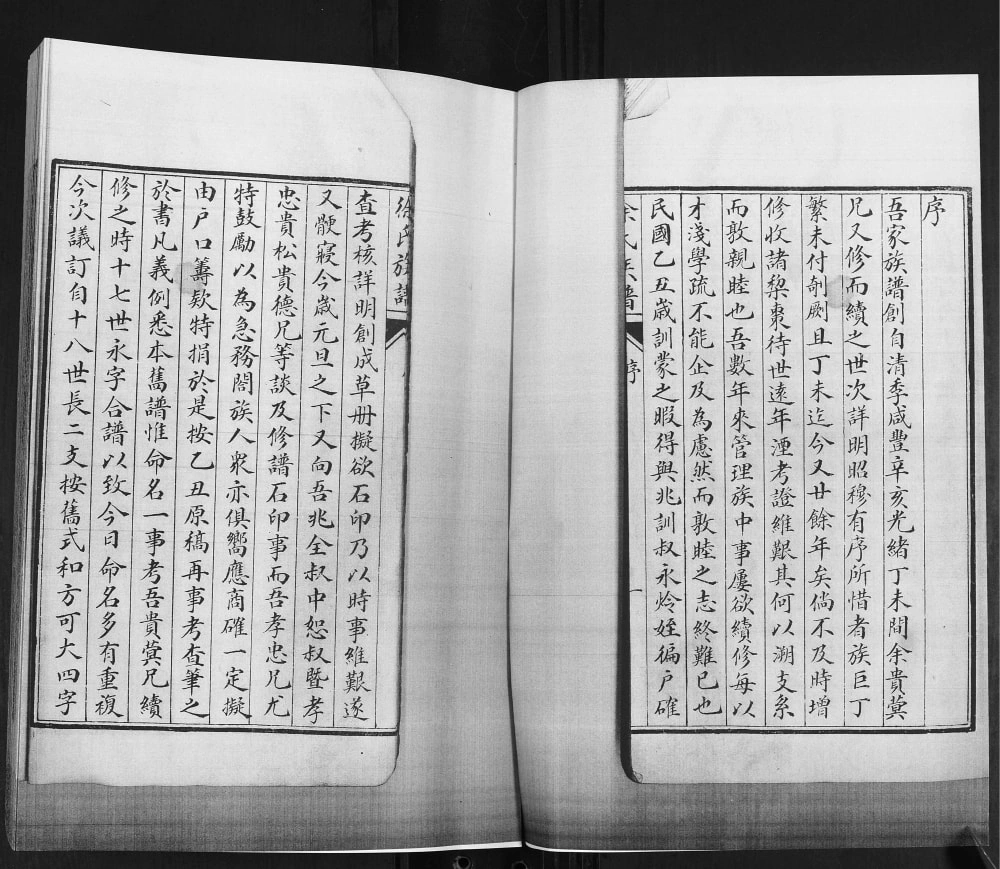 序
吾家族譜創自清季咸豐辛亥光緒丁未間余貴蓂
兄又修而續之世次詳明昭穆有序所惜者族巨丁
繁未付剞劂且丁未迄今又廿餘年矣倘不及時增
修收諸棃棗待世遠年湮考證維艱其何以溯支系
而敦親睦也吾數年來管理族中事屢欲續修每以
才淺學疏不能企及為慮然而敦睦之志終難已也
民國乙丑歲訓蒙之暇得與兆訓叔永炩姪徧戶確
序
一
徐氏族譜
查考核詳明創成草册擬欲石印乃以時事維艱遂
又骾寢今歲元旦之下又向吾兆全叔中恕叔暨孝
忠貴松貴德兄等談及修譜石印事而吾孝忠兄尤
特鼓勵以為急務閤族人衆亦俱嚮應商確一定擬
由戶口籌欵特捐於是按乙丑原稿再事考查筆之
於書凡義例悉本舊譜惟命名一事考吾貴蓂兄續
修之時十七世永字合譜以致今日命名多有重複
今次議訂自十八世長二支按舊式和方可大四字